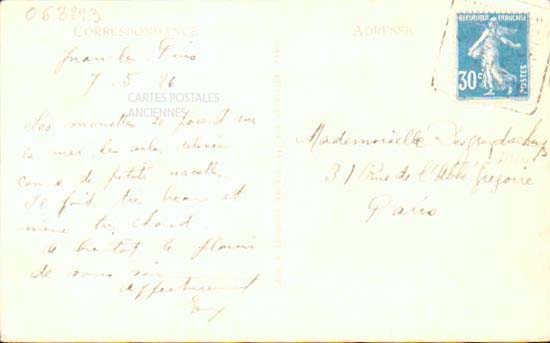 062893
CORRESPONDANCE
Juan les Pins
7. 5. 26
CARTES POSTALES
ANCIENNES
Les mouettes se posent sur
la mer les ailes
comme de petites nacelles
Il fait très beau et
même très chaud.
A bientôt le plaisir
de vous voir
Affectueusement
ADRESSE
REPUBLIQUE FRANÇAISE
30c
POSTES
Mademoiselle
31 Rue de l'Abbé Grégoire
Paris